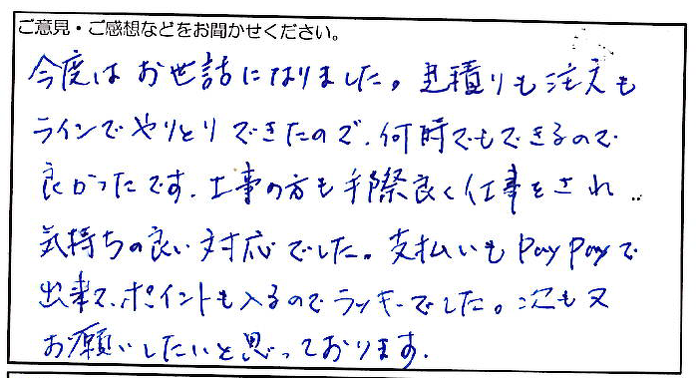 ご意見・ご感想などをお聞かせください。
今度はお世話になりました。見積りも注文も
ラインでやりとりできたので、何時でもできるので
良かったです。工事の方も手際良く仕事をされ
気持ちの良い対応でした。支払いもPayPayで
出来て、ポイントも入るのでラッキーでした。次も又
お願いしたいと思っております。